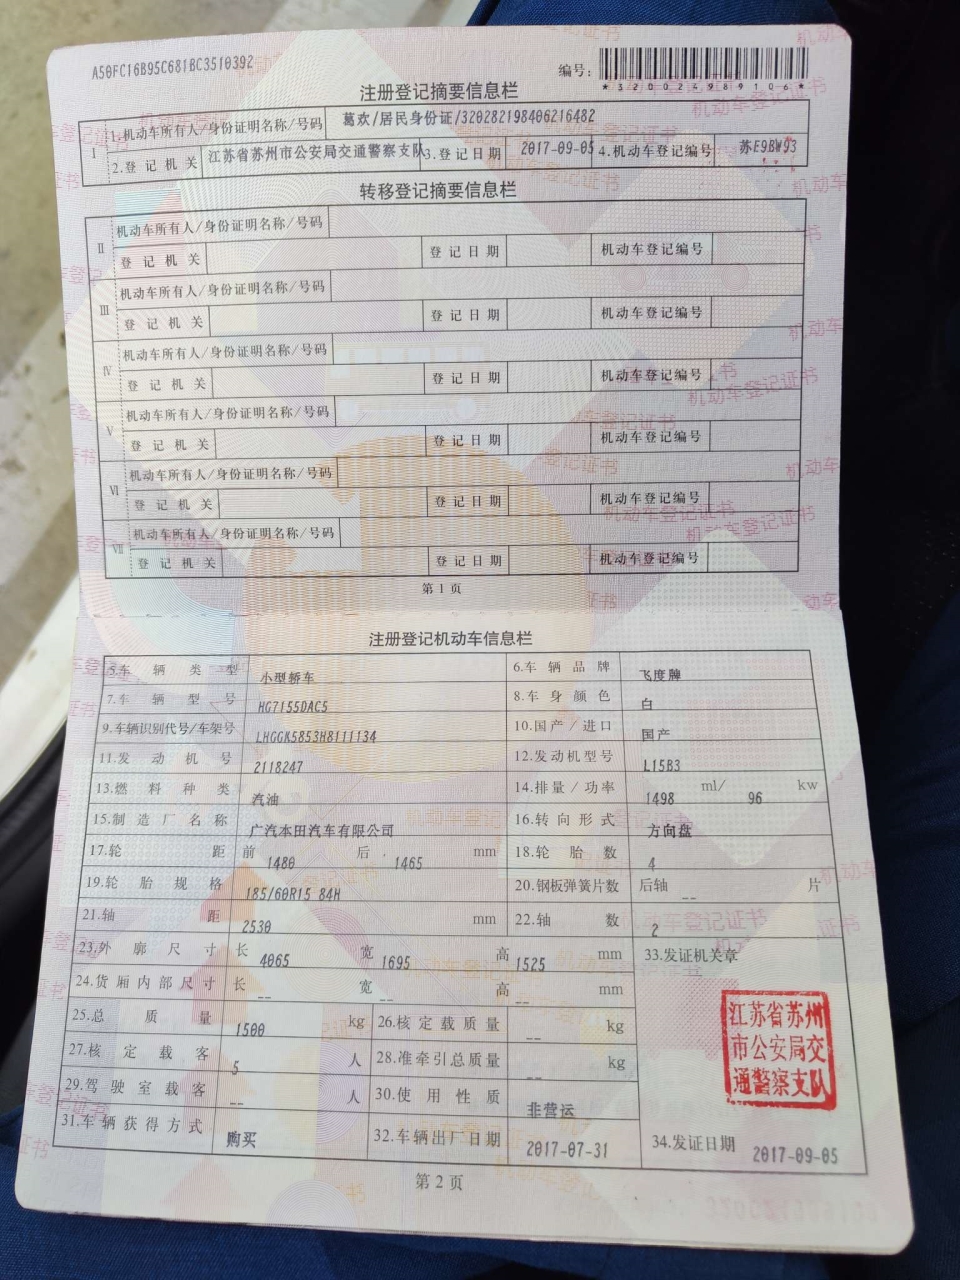 A50FC16B95C681BC3510392
编号:
*320024989106*
注册登记摘要信息栏
I 1.机动车所有人/身份证明名称/号码 葛欢/居民身份证/320282198406216482
2.登记机关 江苏省苏州市公安局交通警察支队 3.登记日期 2017-09-05 4.机动车登记编号 苏E9BW93
转移登记摘要信息栏
II 机动车所有人/身份证明名称/号码
登记机关 登记日期 机动车登记编号
III 机动车所有人/身份证明名称/号码
登记机关 登记日期 机动车登记编号
IV 机动车所有人/身份证明名称/号码
登记机关 登记日期 机动车登记编号
V 机动车所有人/身份证明名称/号码
登记机关 登记日期 机动车登记编号
VI 机动车所有人/身份证明名称/号码
登记机关 登记日期 机动车登记编号
VII 机动车所有人/身份证明名称/号码
登记机关 登记日期 机动车登记编号
第1页
注册登记机动车信息栏
5.车辆类型 小型轿车 6.车辆品牌 飞度牌
7.车辆型号 HG7155DAC5 8.车身颜色 白
9.车辆识别代号/车架号 LHGGK5853H8111134 10.国产/进口 国产
11.发动机号 2118247 12.发动机型号 L15B3
13.燃料种类 汽油 14.排量/功率 1498 ml/ 96 kw
15.制造厂名称 广汽本田汽车有限公司 16.转向形式 方向盘
17.轮距 前 1480 后 1465 mm 18.轮胎数 4
19.轮胎规格 185/60R15 84H 20.钢板弹簧片数 后轴 -- 片
21.轴距 2530 mm 22.轴数 2
23.外廓尺寸 长 4065 宽 1695 高 1525 mm 33.发证机关章
24.货厢内部尺寸 长 -- 宽 -- 高 -- mm
25.总质量 1500 kg 26.核定载质量 -- kg
27.核定载客 5 人 28.准牵引总质量 -- kg
29.驾驶室载客 -- 人 30.使用性质 非营运
31.车辆获得方式 购买 32.车辆出厂日期 2017-07-31 34.发证日期 2017-09-05
江苏省苏州
市公安局交
通警察支队
第2页